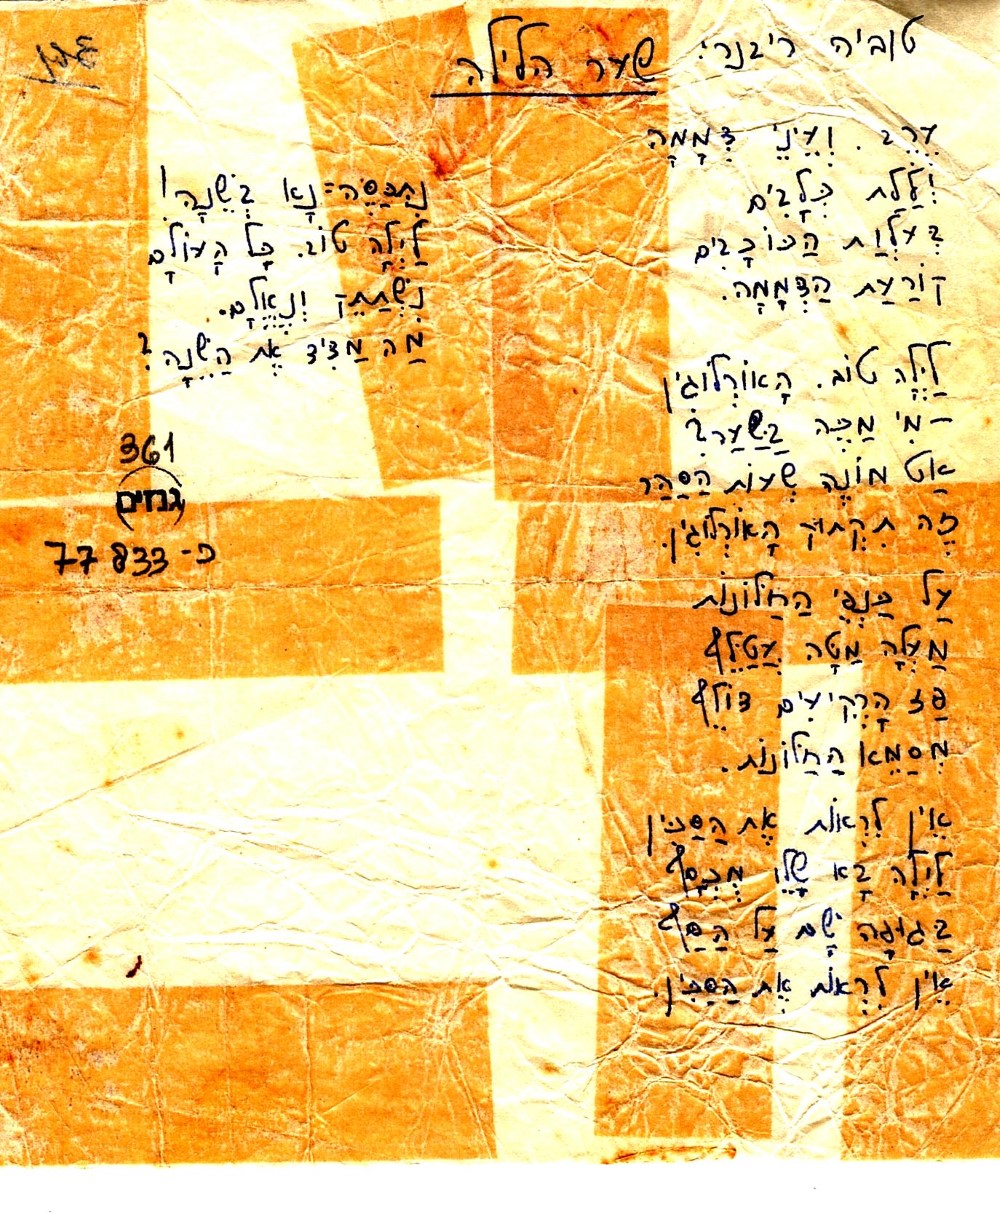 טוביה ריבנר: שער הלילה
עֶרֶב. וְעֵינֵי דְּמָמָה
וִלְלַת כְּלָבִים
בַּעֲלוֹת הַכּוֹכָבִים
קוֹרַעַת הַדְּמָמָה.
לַיְלָה טוֹב. הָאוֹרְלוֹגִין
– מִי מַכֶּה בַּשַּׁעַר?
אַט מוֹנֶה שְׁעוֹת הַסַּהַר
זֶה תִּקְתּוּק הָאוֹרְלוֹגִין.
עַל כַּנְפֵי הַחַלּוֹנוֹת
מַעְלָה מַטָּה עֲטַלֵּף
פַּז הָרְקִיעִים דּוֹלֵף
מְסַמֵּא הַחַלּוֹנוֹת.
אֵין לִרְאוֹת אֶת הַסַּכִּין
לַיְלָה בָּא שָׁלֵו מֻכְסָף
בַּגּוּפָה שָׂם עַל הַסַּף
אֵין לִרְאוֹת אֶת הַסַּכִּין.
נִתְכַּסֶּה=נָא בְּשֵׁנָה!
לַיְלָה טוֹב. כָּל הָעוֹלָם
נִשְׁתַּתֵּק וְנֶאֱלָם.
מַה מַדִּיד אֶת הַשֵּׁנָה?
361
גנזים
כ- 77833